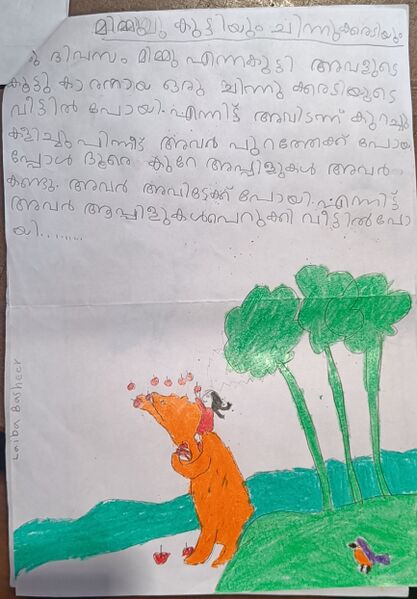 മിമ്മുവു കുട്ടിയും ചിന്നുക്കരടിയും
ദിവസം മിമ്മു എന്നകുട്ടി അവളുടെ
കൂട്ടു കാരനായ ഒരു ചിന്നു ക്കരടിയുടെ
വീട്ടിൽ പോയി. എന്നിട്ട് അവിടന്ന് കുറച്ചു
കളിച്ചു പിന്നീട് അവർ പുറത്തേക്ക് പോയ
പ്പോൾ ദൂരെ കുറേ അപ്പിളുകൾ അവർ
കണ്ടു. അവർ അവിടേക്ക് പോയി. എന്നിട്ട്
അവർ ആപ്പിളുകൾപെറുക്കി വീട്ടിൽപോ
യി........
Laiba Basheer